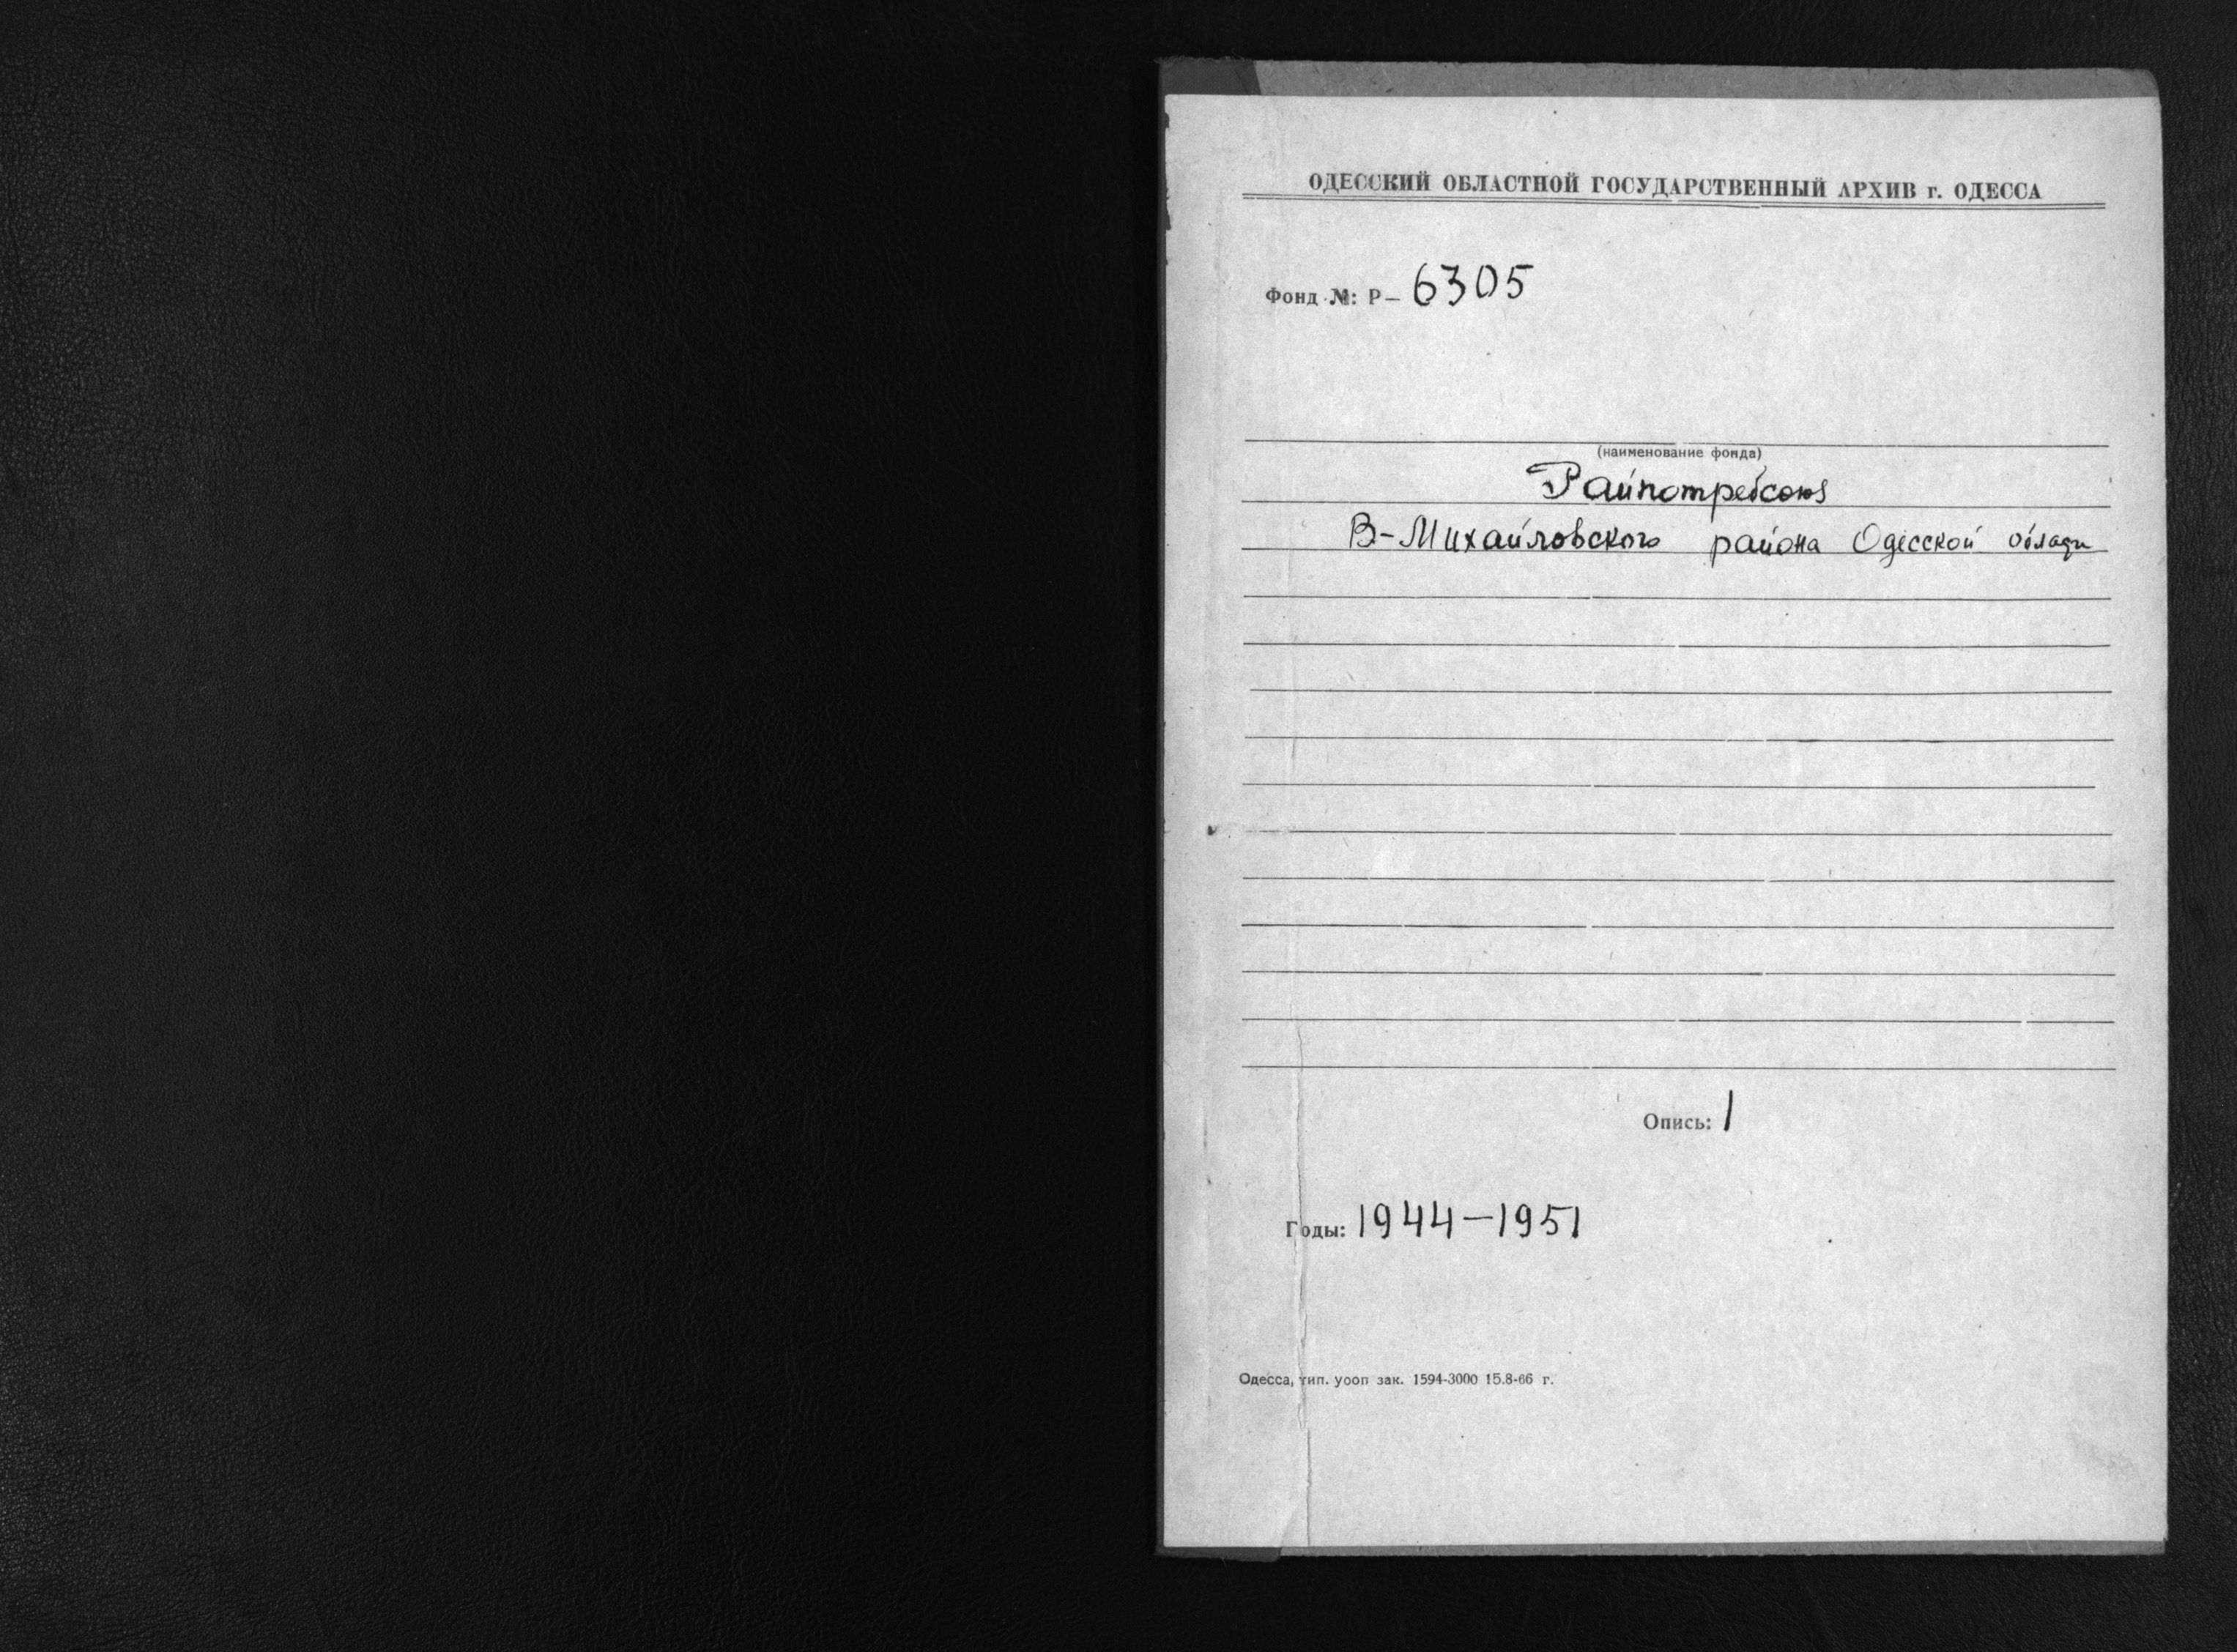 ОДЕССКИЙ ОБЛАСТНОЙ ГОСУДАРСТВЕННЫЙ АРХИВ г. ОДЕССА
Фонд №: Р— 6305
(наименование фонда)
Райпотребсоюз
В-Михайловского района Одесской
Опись: 1
Годы: 1944—1951
Одесса, тип. уооп зак. 1594-3000 15.8-66 г.